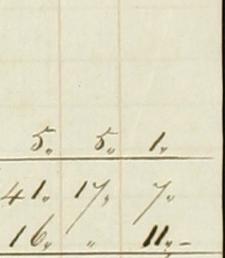 5〃 5〃 1〃
41〃 17〃 7〃
16〃 〃 11〃–